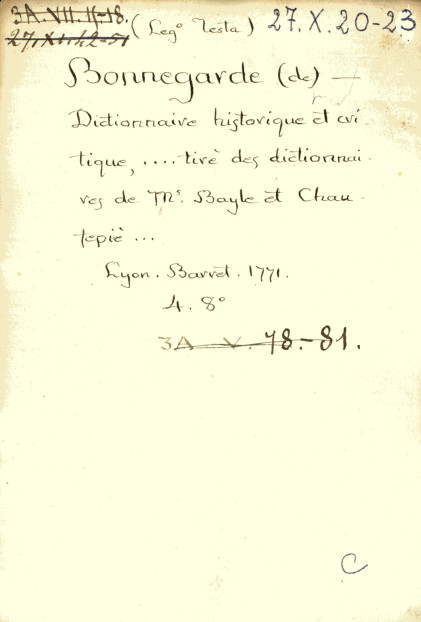 3A. VII. 15-18. (Leg° Testa) 27.X.20-23
27.XI.42-51
Bonnegarde (de) —
Dictionnaire historique et cri-
tique, .... tiré des dictionnai-
res de Mrs. Bayle et Chau-
fepié ...
Lyon. Barret. 1771.
4. 8°
3A V. 78.-81.
C